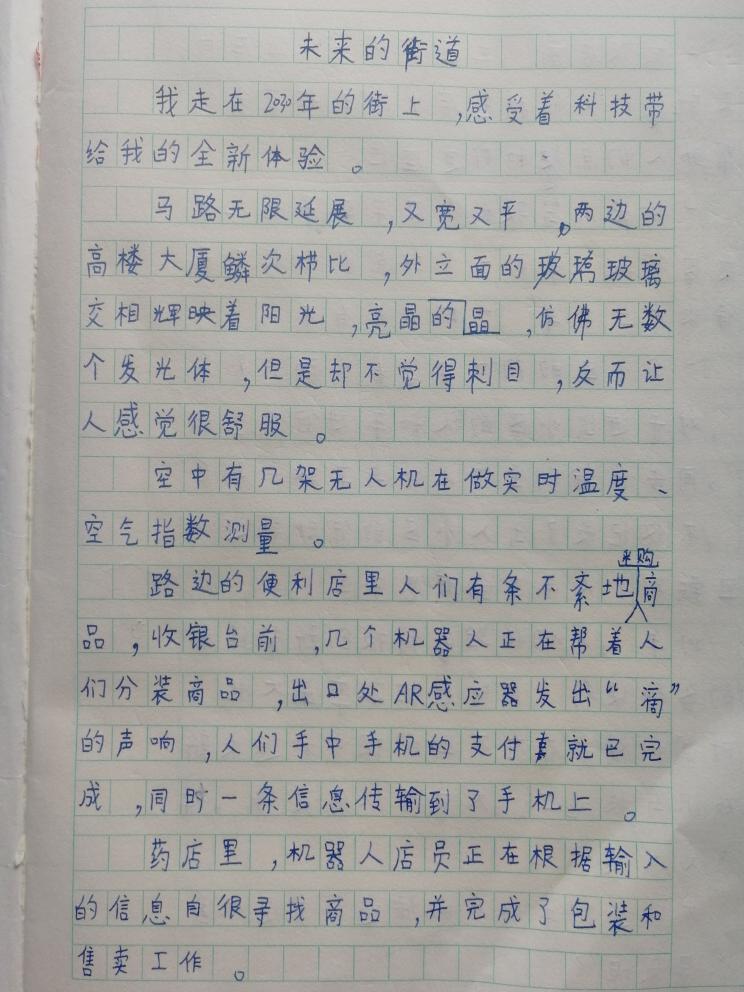 未来的街道
我走在2030年的街上,感受着科技带
给我的全新体验。
马路无限延展,又宽又平,两边的
高楼大厦鳞次栉比,外立面的玻璃玻璃
交相辉映着阳光,亮晶的晶,仿佛无数
个发光体,但是却不觉得刺目,反而让
人感觉很舒服。
空中有几架无人机在做实时温度、
空气指数测量。
采购
路边的便利店里人们有条不紊地商
品,收银台前,几个机器人正在帮着人
们分装商品,出口处AR感应器发出“滴”
的声响,人们手中手机的支付就已完
成,同时一条信息传输到了手机上。
药店里,机器人店员正在根据输入
的信息自很寻找商品,并完成了包装和
售卖工作。